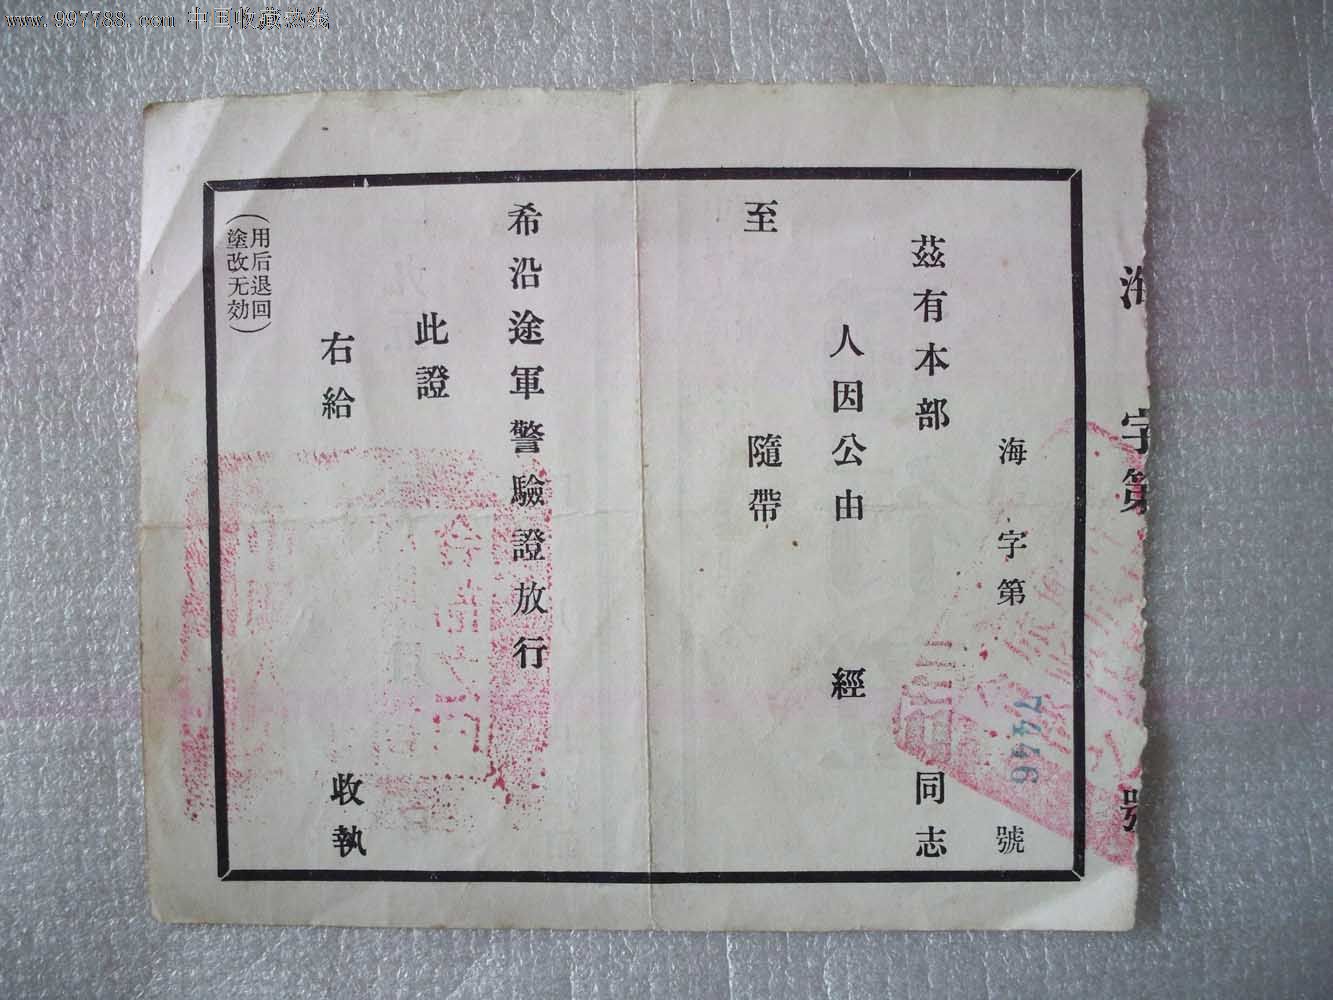 www.997788.com 中国收藏热线
海字第號
海字第7446號
茲有本部同志
人因公由經
至隨帶
希沿途軍警驗證放行
此證
右給收執
(用后退回
塗改无効)